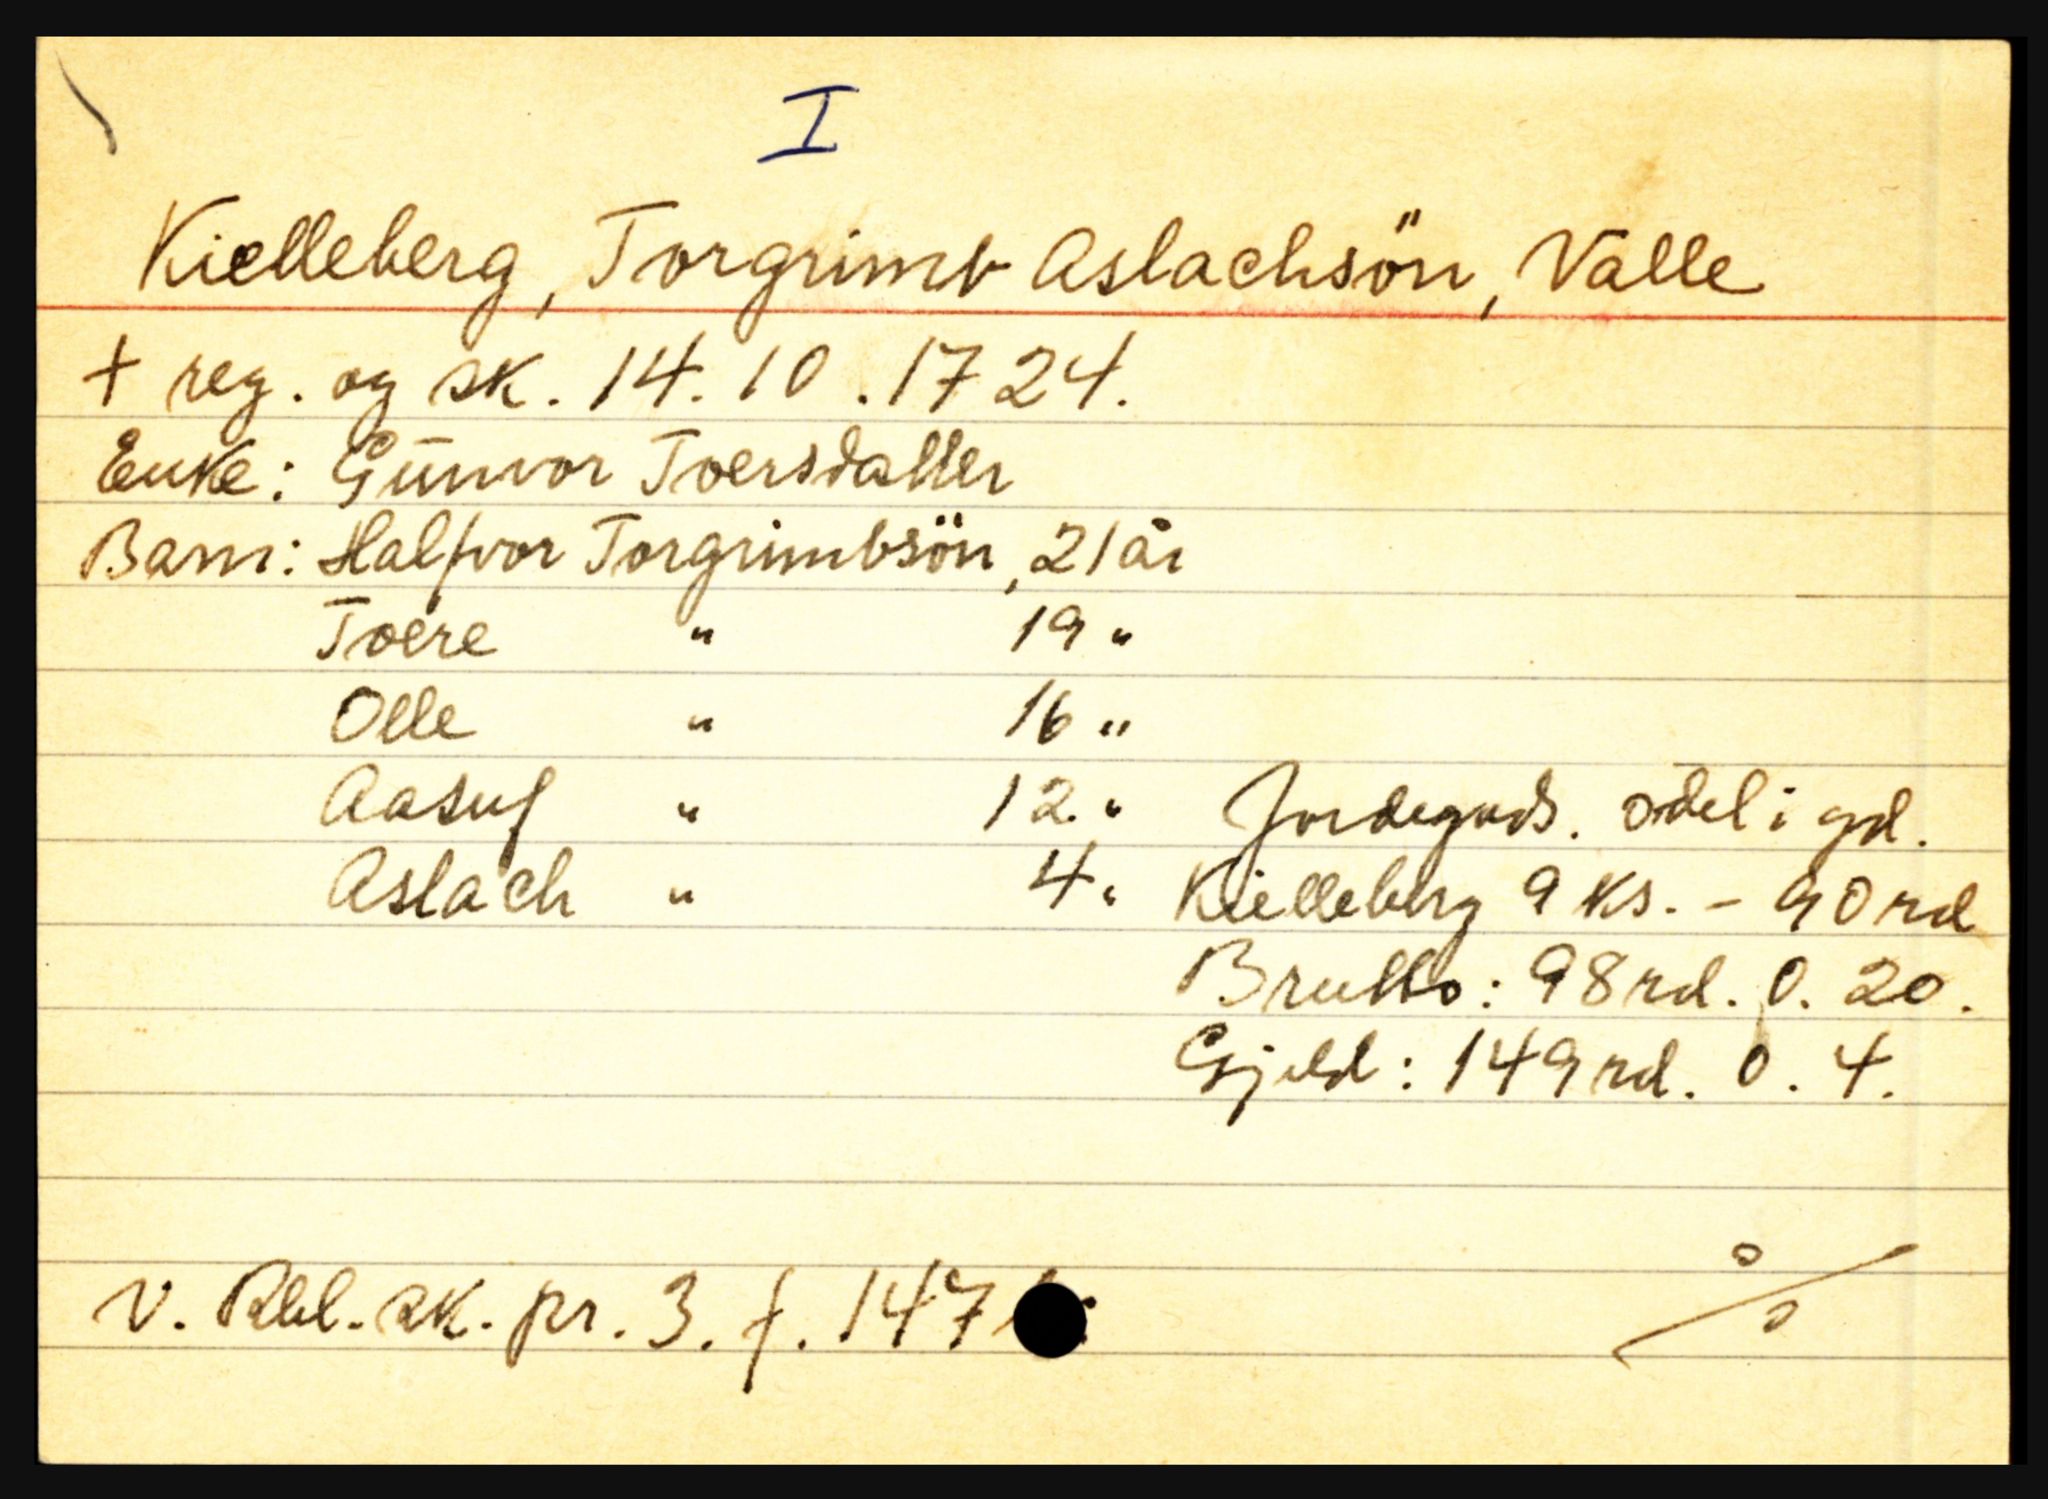 I
Kielleberg, Torgrimb Aslachsön, Valle
+ reg. og sk. 14.10.1724.
Enke: Gunvor Toersdatter
Barn: Halfvor Torgrimbsön, 21 år
Toere " 19 "
Olle " 16 "
Aasuf " 12 " Jordegods. odel i gd.
Aslach " 4 " Kielleberg 9 ks. - 90 rd
Brutto: 98 rd. 0. 20.
Gjeld: 149 rd. 0. 4.
V. Rbl. sk. pr. 3. f. 147